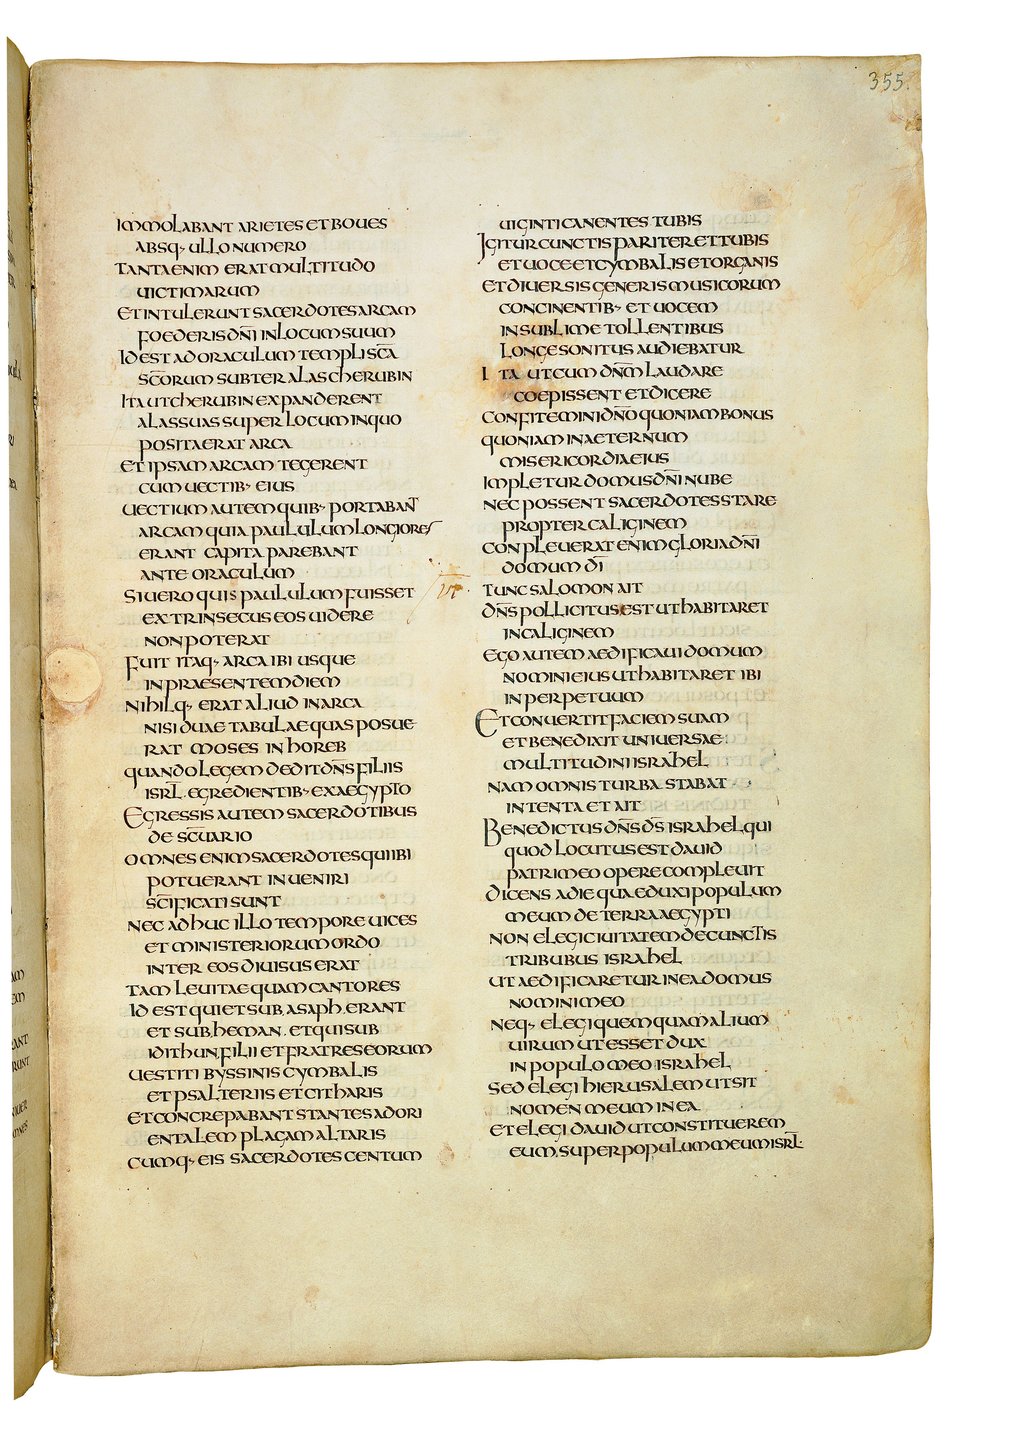 355.
IMMOLABANT ARIETES ET BOUES
ABSQ· ULLO NUMERO
TANTA ENIM ERAT MULTITUDO
UICTIMARUM
ET INTULERUNT SACERDOTES ARCAM
FOEDERIS DN̄I IN LOCUM SUUM
ID EST AD ORACULUM TEMPLI SC̄A
SC̄ORUM SUBTER ALAS CHERUBIN
ITA UT CHERUBIN EXPANDERENT
ALAS SUAS SUPER LOCUM IN QUO
POSITA ERAT ARCA
ET IPSAM ARCAM TEGERENT
CUM UECTIB· EIUS
UECTIUM AUTEM QUIB· PORTABAN̄T
ARCAM QUIA PAULULUM LONGIORES
ERANT CAPITA PAREBANT
ANTE ORACULUM
SI UERO QUIS PAULULUM FUISSET
EXTRINSECUS EOS UIDERE
NON POTERAT
FUIT ITAQ· ARCA IBI USQUE
IN PRAESENTEM DIEM
NIHILQ· ERAT ALIUD IN ARCA
NISI DUAE TABULAE QUAS POSUE
RAT MOSES IN HOREB
QUANDO LEGEM DEDIT DN̄S FILIIS
ISRL̄. EGREDIENTIB· EX AEGYPTO
EGRESSIS AUTEM SACERDOTIBUS
DE SC̄UARIO
OMNES ENIM SACERDOTES QUI IBI
POTUERANT INUENIRI
SC̄IFICATI SUNT
NEC ADHUC ILLO TEMPORE UICES
ET MINISTERIORUM ORDO
INTER EOS DIUISUS ERAT
TAM LEUITAE QUAM CANTORES
ID EST QUI ET SUB, ASAPH. ERANT
ET SUB, HEMAN. ET QUI SUB
IDITHUN, FILII ET FRATRES EORUM
UESTITI BYSSINIS CYMBALIS
ET PSALTERIIS ET CITHARIS
ET CONCREPABANT STANTES AD ORI
ENTALEM PLAGAM ALTARIS
CUMQ· EIS SACERDOTES CENTUM
UIGINTI CANENTES TUBIS
IGITUR CUNCTIS PARITER ET TUBIS
ET UOCE ET CYMBALIS ET ORGANIS
ET DIUERSIS GENERIS MUSICORUM
CONCINENTIB· ET UOCEM
IN SUBLIME TOLLENTIBUS
LONGE SONITUS AUDIEBATUR
ITA UT CUM DN̄M LAUDARE
COEPISSENT ET DICERE
CONFITEMINI DN̄O QUONIAM BONUS
QUONIAM IN AETERNUM
MISERICORDIA EIUS
IMPLETUR DOMUS DN̄I NUBE
NEC POSSENT SACERDOTES STARE
PROPTER CALIGINEM
CONPLEUERAT ENIM GLORIA DN̄I
DOMUM DĪ
VI·
TUNC SALOMON AIT
DN̄S POLLICITUS EST UT HABITARET
IN CALIGINEM
EGO AUTEM AEDIFICAUI DOMUM
NOMINI EIUS UT HABITARET IBI
IN PERPETUUM
ET CONUERTIT FACIEM SUAM
ET BENEDIXIT UNIUERSAE
MULTITUDINI ISRAHEL
NAM OMNIS TURBA STABAT
INTENTA ET AIT
BENEDICTUS DN̄S DS̄ ISRAHEL, QUI
QUOD LOCUTUS EST DAUID
PATRI MEO OPERE COMPLEUIT
DICENS A DIE QUA EDUXI POPULUM
MEUM DE TERRA AEGYPTI
NON ELEGI CIUITATEM DE CUNCTIS
TRIBUBUS ISRAHEL
UT AEDIFICARETUR IN EA DOMUS
NOMINI MEO
NEQ· ELEGI QUEMQUAM ALIUM
UIRUM UT ESSET DUX
IN POPULO MEO ISRAHEL
SED ELEGI HIERUSALEM UT SIT
NOMEN MEUM IN EA
ET ELEGI DAUID UT CONSTITUEREM
EUM, SUPER POPULUM MEUM ISRL̄.